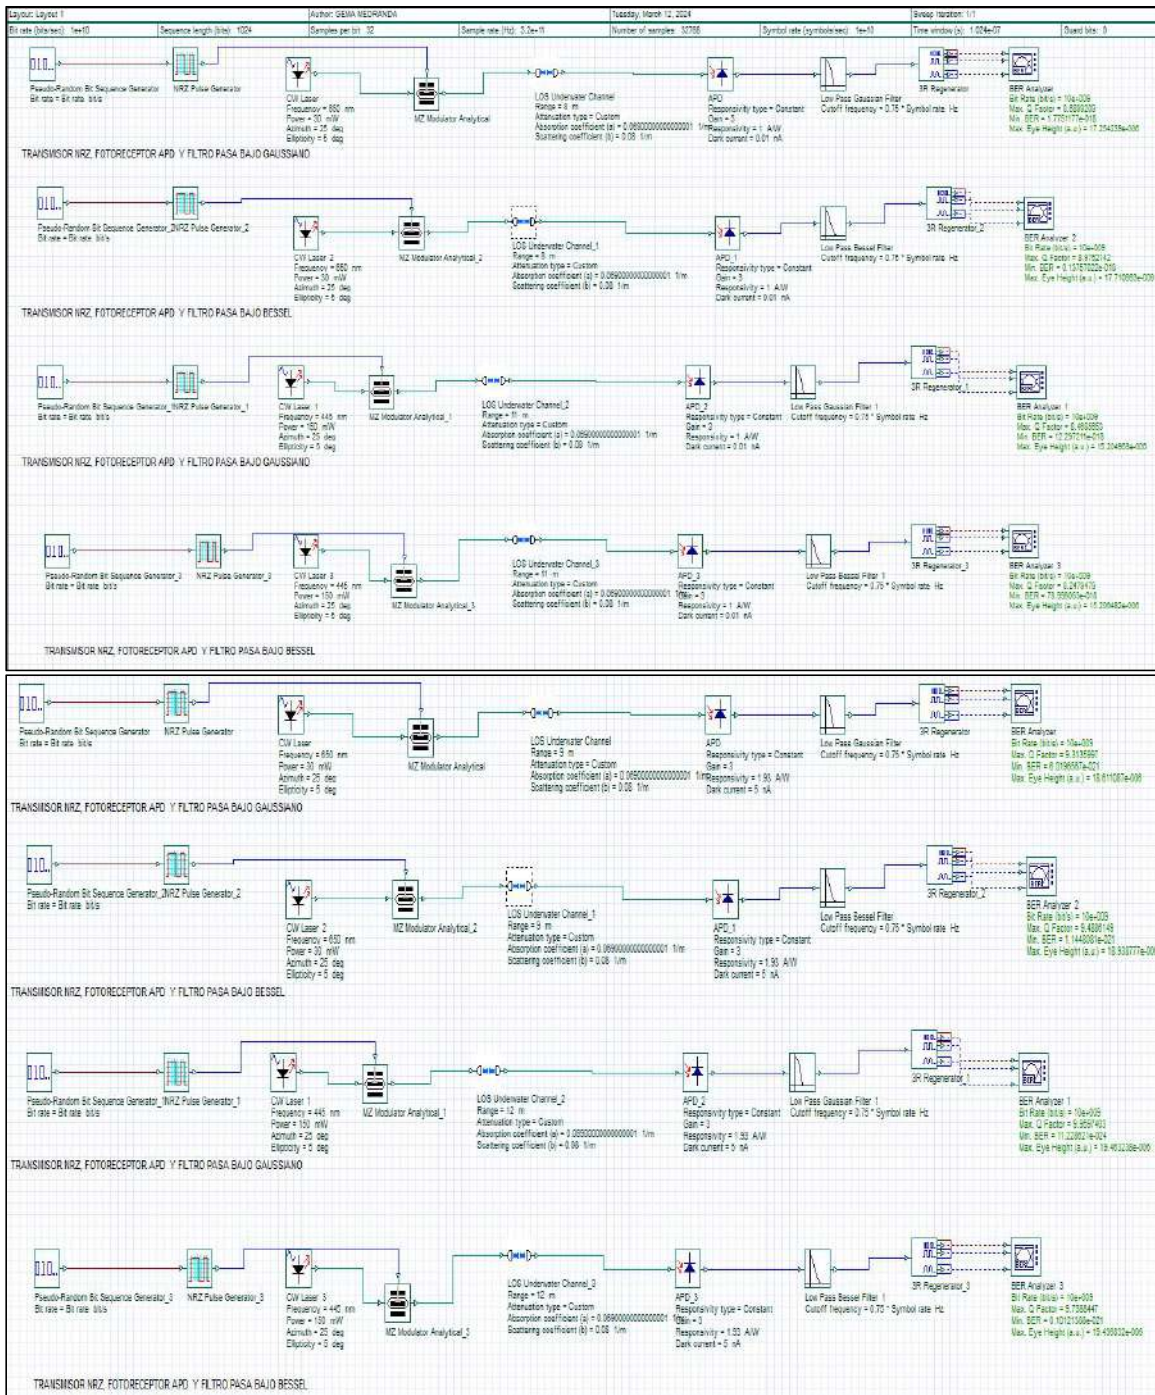 Layout: Layout 1 Author: GEMA MEDRANDA Tuesday, March 12, 2024 Sweep Iteration: 1/1
Bit rate (bits/sec): 1e+10 Sequence length (bits): 1024 Samples per bit: 32 Sample rate (Hz): 3.2e+11 Number of samples: 32768 Symbol rate (symbols/sec): 1e+10 Time window (s): 1.024e-07 Guard bits: 0
Pseudo-Random Bit Sequence Generator
Bit rate = Bit rate bit/s
NRZ Pulse Generator
CW Laser
Power = 30 mW
Azimuth = 25 deg
Ellipticity = 5 deg
MZ Modulator Analytical
LOS Underwater Channel
Range = 8 m
Attenuation type = Custom
Absorption coefficient (a) = 0.06900000000000001 1/m
Scattering coefficient (b) = 0.08 1/m
APD
Responsivity type = Constant
Gain = 3
Responsivity = 1 A/W
Dark current = 0.01 nA
Low Pass Gaussian Filter
Cutoff frequency = 0.75 * Symbol rate Hz
3R Regenerator
BER Analyzer
Bit Rate (bit/s) = 10e+009
TRANSMISOR NRZ, FOTORECEPTOR APD Y FILTRO PASA BAJO GAUSSIANO
Pseudo-Random Bit Sequence Generator_2
Bit rate = Bit rate bit/s
NRZ Pulse Generator_2
CW Laser 2
Power = 30 mW
Azimuth = 25 deg
Ellipticity = 5 deg
MZ Modulator Analytical_2
LOS Underwater Channel_1
Range = 8 m
Attenuation type = Custom
Absorption coefficient (a) = 0.06900000000000001 1/m
Scattering coefficient (b) = 0.08 1/m
APD_1
Responsivity type = Constant
Gain = 3
Responsivity = 1 A/W
Dark current = 0.01 nA
Low Pass Bessel Filter
Cutoff frequency = 0.75 * Symbol rate Hz
3R Regenerator_2
BER Analyzer 2
Bit Rate (bit/s) = 10e+009
TRANSMISOR NRZ, FOTORECEPTOR APD Y FILTRO PASA BAJO BESSEL
Pseudo-Random Bit Sequence Generator_1
Bit rate = Bit rate bit/s
NRZ Pulse Generator_1
CW Laser 1
Frequency = 445 nm
Power = 150 mW
Azimuth = 25 deg
Ellipticity = 5 deg
MZ Modulator Analytical_1
LOS Underwater Channel_2
Range = 11 m
Attenuation type = Custom
Absorption coefficient (a) = 0.06900000000000001 1/m
Scattering coefficient (b) = 0.08 1/m
APD_2
Responsivity type = Constant
Gain = 3
Responsivity = 1 A/W
Dark current = 0.01 nA
Low Pass Gaussian Filter 1
Cutoff frequency = 0.75 * Symbol rate Hz
3R Regenerator_1
BER Analyzer 1
Bit Rate (bit/s) = 10e+009
TRANSMISOR NRZ, FOTORECEPTOR APD Y FILTRO PASA BAJO GAUSSIANO
Pseudo-Random Bit Sequence Generator_3
Bit rate = Bit rate bit/s
NRZ Pulse Generator_3
CW Laser 3
Frequency = 445 nm
Power = 150 mW
Azimuth = 25 deg
Ellipticity = 5 deg
MZ Modulator Analytical_3
LOS Underwater Channel_3
Range = 11 m
Attenuation type = Custom
Absorption coefficient (a) = 0.06900000000000001 1/m
Scattering coefficient (b) = 0.08 1/m
APD_3
Responsivity type = Constant
Gain = 3
Responsivity = 1 A/W
Dark current = 0.01 nA
Low Pass Bessel Filter 1
Cutoff frequency = 0.75 * Symbol rate Hz
3R Regenerator_3
BER Analyzer 3
Bit Rate (bit/s) = 10e+009
TRANSMISOR NRZ, FOTORECEPTOR APD Y FILTRO PASA BAJO BESSEL
Pseudo-Random Bit Sequence Generator
Bit rate = Bit rate bit/s
NRZ Pulse Generator
CW Laser
Frequency = 650 nm
Power = 30 mW
Azimuth = 25 deg
Ellipticity = 5 deg
MZ Modulator Analytical
LOS Underwater Channel
Range = 9 m
Attenuation type = Custom
Absorption coefficient (a) = 0.06900000000000001 1/m
Scattering coefficient (b) = 0.08 1/m
APD
Responsivity type = Constant
Gain = 3
Responsivity = 1.93 A/W
Dark current = 5 nA
Low Pass Gaussian Filter
Cutoff frequency = 0.75 * Symbol rate Hz
3R Regenerator
BER Analyzer
Bit Rate (bit/s) = 10e+009
TRANSMISOR NRZ, FOTORECEPTOR APD Y FILTRO PASA BAJO GAUSSIANO
Pseudo-Random Bit Sequence Generator_2
Bit rate = Bit rate bit/s
NRZ Pulse Generator_2
CW Laser 2
Frequency = 650 nm
Power = 30 mW
Azimuth = 25 deg
Ellipticity = 5 deg
MZ Modulator Analytical_2
LOS Underwater Channel_1
Range = 9 m
Attenuation type = Custom
Absorption coefficient (a) = 0.06900000000000001 1/m
Scattering coefficient (b) = 0.08 1/m
APD_1
Responsivity type = Constant
Gain = 3
Responsivity = 1.93 A/W
Dark current = 5 nA
Low Pass Bessel Filter
Cutoff frequency = 0.75 * Symbol rate Hz
3R Regenerator_2
BER Analyzer 2
Bit Rate (bit/s) = 10e+009
TRANSMISOR NRZ, FOTORECEPTOR APD Y FILTRO PASA BAJO BESSEL
Pseudo-Random Bit Sequence Generator_1
Bit rate = Bit rate bit/s
NRZ Pulse Generator_1
CW Laser 1
Frequency = 445 nm
Power = 150 mW
Azimuth = 25 deg
Ellipticity = 5 deg
MZ Modulator Analytical_1
LOS Underwater Channel_2
Range = 12 m
Attenuation type = Custom
Absorption coefficient (a) = 0.06900000000000001 1/m
Scattering coefficient (b) = 0.08 1/m
APD_2
Responsivity type = Constant
Gain = 3
Responsivity = 1.93 A/W
Dark current = 5 nA
Low Pass Gaussian Filter 1
Cutoff frequency = 0.75 * Symbol rate Hz
3R Regenerator_1
BER Analyzer 1
Bit Rate (bit/s) = 10e+009
TRANSMISOR NRZ, FOTORECEPTOR APD Y FILTRO PASA BAJO GAUSSIANO
Pseudo-Random Bit Sequence Generator_3
Bit rate = Bit rate bit/s
NRZ Pulse Generator_3
CW Laser 3
Frequency = 445 nm
Power = 150 mW
Azimuth = 25 deg
Ellipticity = 5 deg
MZ Modulator Analytical_3
LOS Underwater Channel_3
Range = 12 m
Attenuation type = Custom
Absorption coefficient (a) = 0.06900000000000001 1/m
Scattering coefficient (b) = 0.08 1/m
APD_3
Responsivity type = Constant
Gain = 3
Responsivity = 1.93 A/W
Dark current = 5 nA
Low Pass Bessel Filter 1
Cutoff frequency = 0.75 * Symbol rate Hz
3R Regenerator_3
BER Analyzer 3
Bit Rate (bit/s) = 10e+009
TRANSMISOR NRZ, FOTORECEPTOR APD Y FILTRO PASA BAJO BESSEL